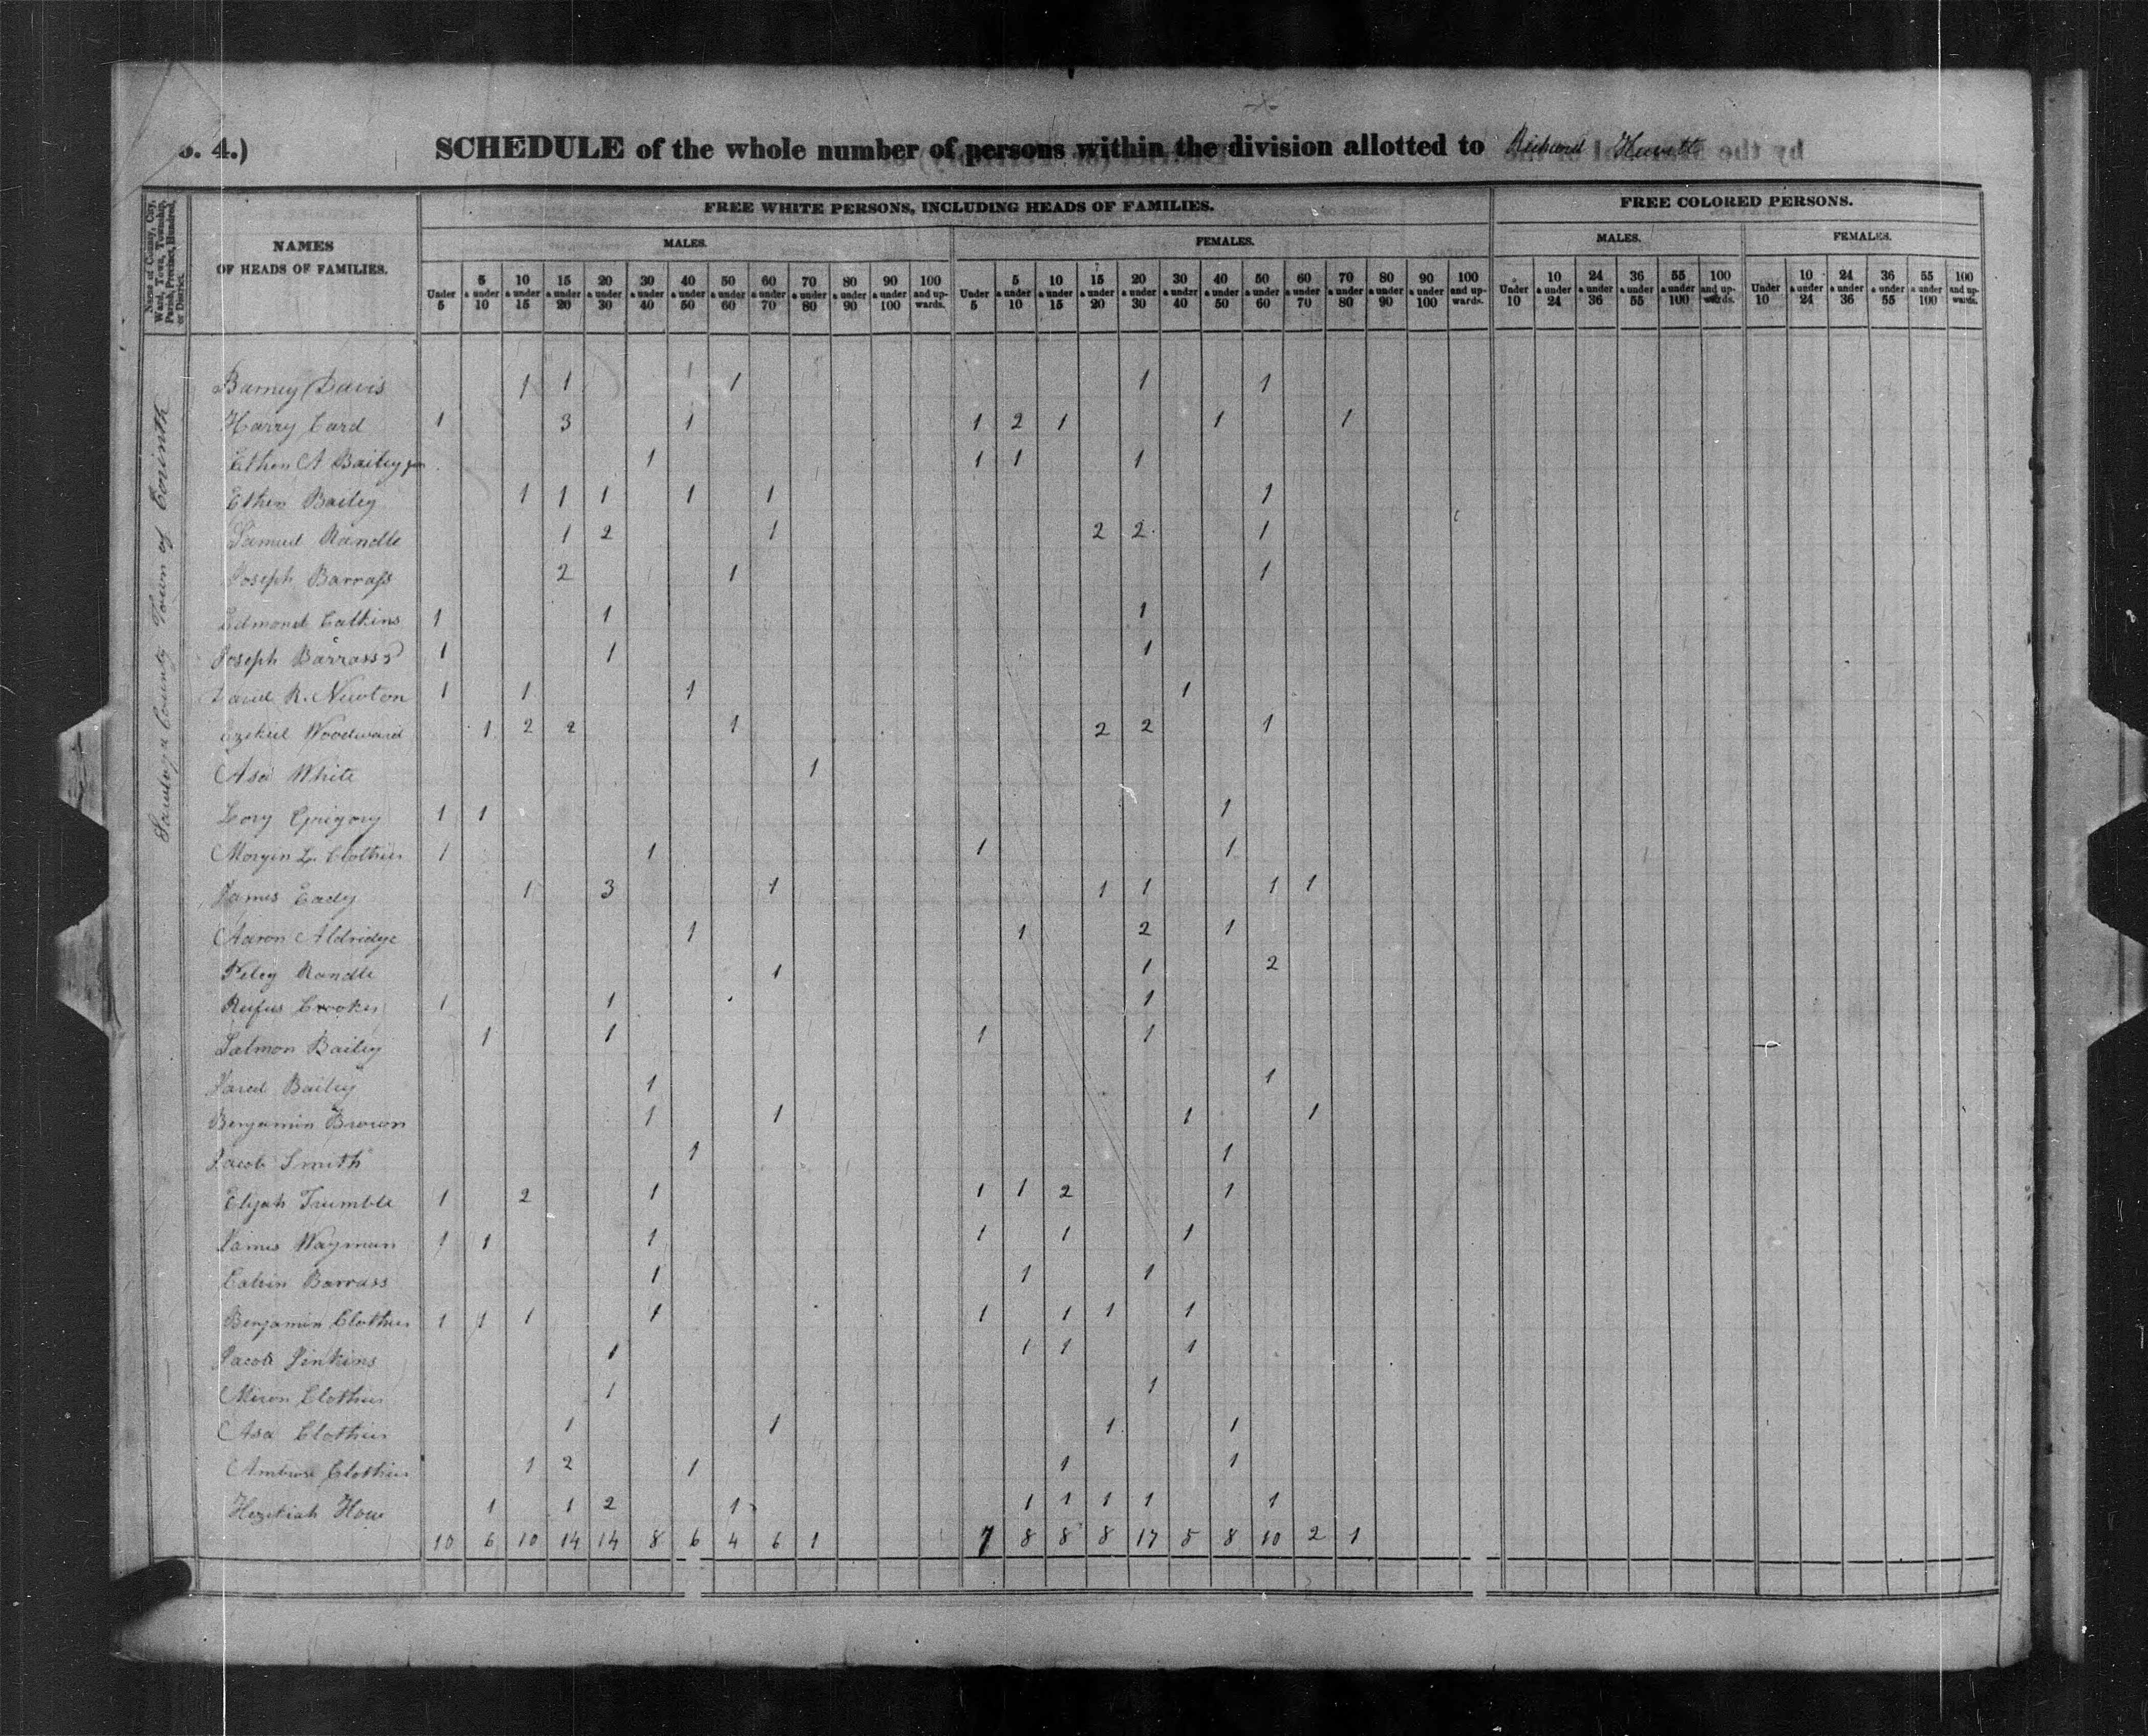 o. 4.)
SCHEDULE of the whole number of persons within the division allotted to Richard Hewett
by the
Name of County, City, Ward, Town, Township, Parish, Precinct, Hundred, or District.
NAMES
OF HEADS OF FAMILIES.
FREE WHITE PERSONS, INCLUDING HEADS OF FAMILIES.
FREE COLORED PERSONS.
MALES. FEMALES. MALES. FEMALES.
Under 5 | 5 & under 10 | 10 & under 15 | 15 & under 20 | 20 & under 30 | 30 & under 40 | 40 & under 50 | 50 & under 60 | 60 & under 70 | 70 & under 80 | 80 & under 90 | 90 & under 100 | 100 and upwards. | Under 5 | 5 & under 10 | 10 & under 15 | 15 & under 20 | 20 & under 30 | 30 & under 40 | 40 & under 50 | 50 & under 60 | 60 & under 70 | 70 & under 80 | 80 & under 90 | 90 & under 100 | 100 and upwards. | Under 10 | 10 & under 24 | 24 & under 36 | 36 & under 55 | 55 & under 100 | 100 and upwards. | Under 10 | 10 & under 24 | 24 & under 36 | 36 & under 55 | 55 & under 100 | 100 and upwards.
Saratoga County Town of Corinth
Barney Davis 1 1 1 1 1 1
Harry Card 1 3 1 1 2 1 1 1
Ethen A Bailey jun 1 1 1 1
Ethen Bailey 1 1 1 1 1 1
Samuel Randle 1 2 1 2 2 1
Joseph Barrass 2 1 1
Edmond Calkins 1 1 1
Joseph Barrass 2 1 1 1
David R. Newton 1 1 1 1
Ezekiel Woodward 1 2 2 1 2 2 1
Asa White 1
Lory Grigory 1 1 1
Morgin L. Clothier 1 1 1 1
James Eady 1 3 1 1 1 1 1
Aaron Aldridge 1 1 2 1
Peleg Randle 1 1 2
Rufus Crooker 1 1 1
Salmon Bailey 1 1 1 1
Jared Bailey 1 1
Benjamin Brown 1 1 1 1
Jacob Smith 1 1
Elijah Trumble 1 2 1 1 1 2 1
James Wayman 1 1 1 1 1 1
Calvin Barrass 1 1 1
Benjamin Clothier 1 1 1 1 1 1 1 1
Jacob Jenkins 1 1 1 1
Miron Clothier 1 1
Asa Clothier 1 1 1 1
Ambrose Clothier 1 2 1 1 1
Hezekiah How 1 1 2 1 1 1 1 1 1
10 6 10 14 14 8 6 4 6 1 7 8 8 8 17 5 8 10 2 1